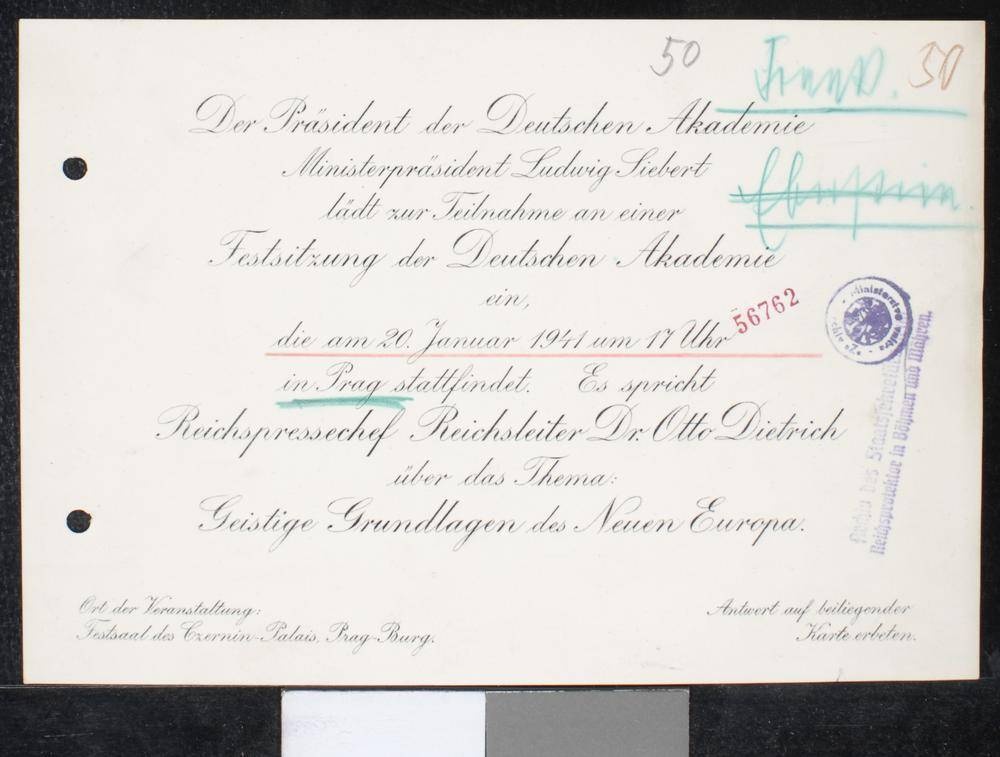 50
50
Der Präsident der Deutschen Akademie
Ministerpräsident Ludwig Siebert
lädt zur Teilnahme an einer
Festsitzung der Deutschen Akademie
ein,
die am 20. Januar 1941 um 17 Uhr
56762
in Prag stattfindet. Es spricht
Reichspressechef Reichsleiter Dr. Otto Dietrich
über das Thema:
Geistige Grundlagen des Neuen Europa.
Ort der Veranstaltung:
Festsaal des Czernin-Palais, Prag-Burg.
Antwort auf beiliegender
Karte erbeten.
des Staatssekretärs
Reichsprotektor in Böhmen und Mähren.